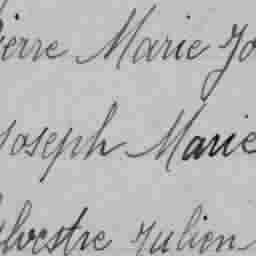 Pierre Marie Jo
Joseph Marie
Sylvestre Julien